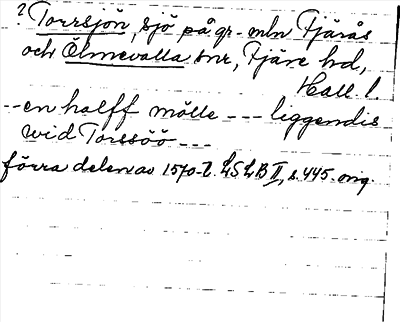 ? Torrsjön, sjö på gr. mln Fjärås
och Ölmevalla snr, Fjäre hd,
Hall. l.
-- en halff mölle --- liggendis
wid Torssöö ---
förra delen av 1570-t. LSLB II, s. 445. orig.